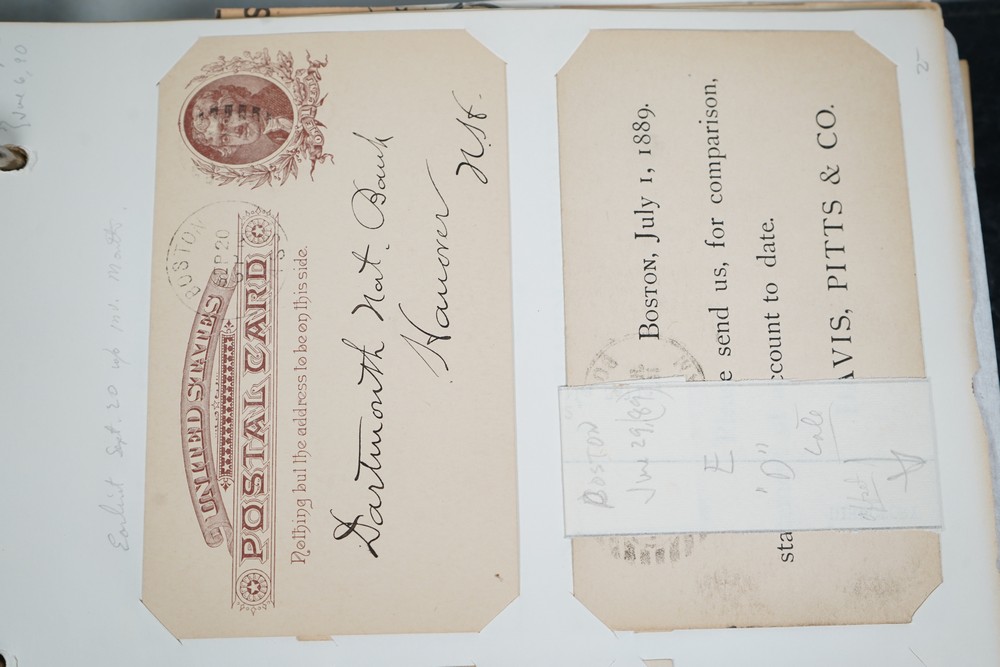 June 6, 90
Earliest Sept. 20
BOSTON
SEP 20
UNITED STATES
POSTAL CARD
Nothing but the address to be on this side.
Dartmouth Nat. Bank
Hanover
N.H.
2-
BOSTON, July 1, 1889.
e send us, for comparison,
sta
ccount to date.
AVIS, PITTS & CO.
BOSTON
June 29/(89)
E
"D"
Late